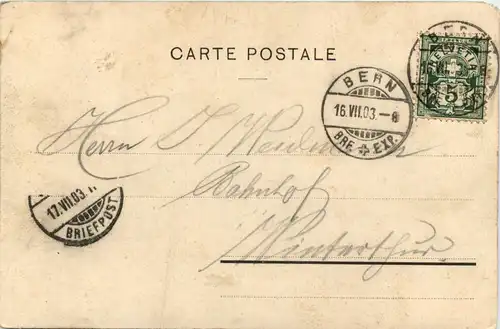 CARTE POSTALE
HELVETIA
5
BERN
16.VII.03.-8
BRF. EXP.
Herrn J. Weidmann
Bahnhof
Winterthur
17.VII.03.
BRIEFPOST